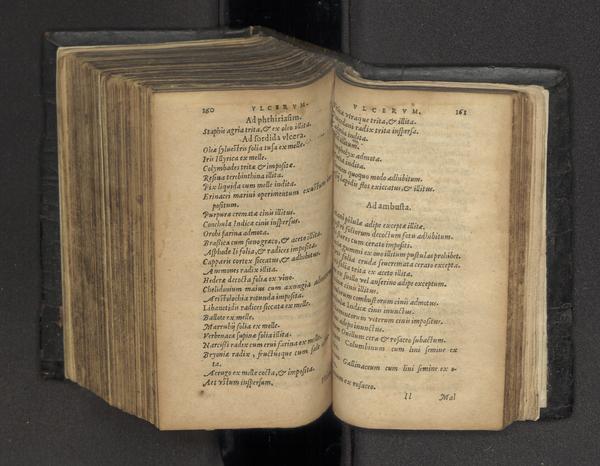 260 VLCERVM.
Ad phthiriasim.
Staphis agria trita, & ex oleo illita.
Ad sordida vlcera.
Oleæ syluestris folia tusa ex melle.
Iris Illyrica ex melle.
Colymbades tritæ & impositæ.
Resina terebinthina illita.
Pix liquida cum melle indita.
Erinacei marini operimentum exustum
positum.
Purpuræ crematæ cinis illitus.
Conchulæ Indicæ cinis inspersus.
Orobi farina admota.
Brassica cum fœnogræco, & aceto illita.
Asphodeli folia, & radices imposita.
Capparis cortex siccatus & adhibitus.
Ammones radix illita.
Hederæ decocta folia ex vino.
Chelidonium maius cum axungia
Aristolochia rotunda imposita.
Libanotidis radices siccatæ ex melle.
Ballote ex melle.
Marrubij folia ex melle.
Verbenacæ supinæ folia illita.
Narcissi radix cum erui farina ex melle.
Bryoniæ radix, fructusque cum sale
ta.
Aerugo ex melle cocta, & imposita.
Aes vstum inspersum.
VLCERVM. 261
vtraque trita, & illita.
radix trita inspersa.
indita.
illitum.
admota.
indita.
quoquo modo adhibitum.
lapidis flos exiccatus, & illitus.
Ad ambusta.
pilulæ adipe exceptæ illitæ.
foliorum decoctum fotu adhibitum.
flores cum cerato impositi.
gummi ex ouo illitum pustulas prohibet.
folia cruda seu cremata cerato excepta.
folia trita ex aceto illita.
scilla vel anserino adipe exceptum.
cinis illitus.
combustorum cinis admotus.
Indicæ cinis inunctus.
veterum cinis impositus.
adeps inunctus.
Ouillum cera & rosaceo subactum.
Columbinum cum lini semine ex
Gallinaceum cum lini semine ex o-
ex rosaceo.
ll Mal